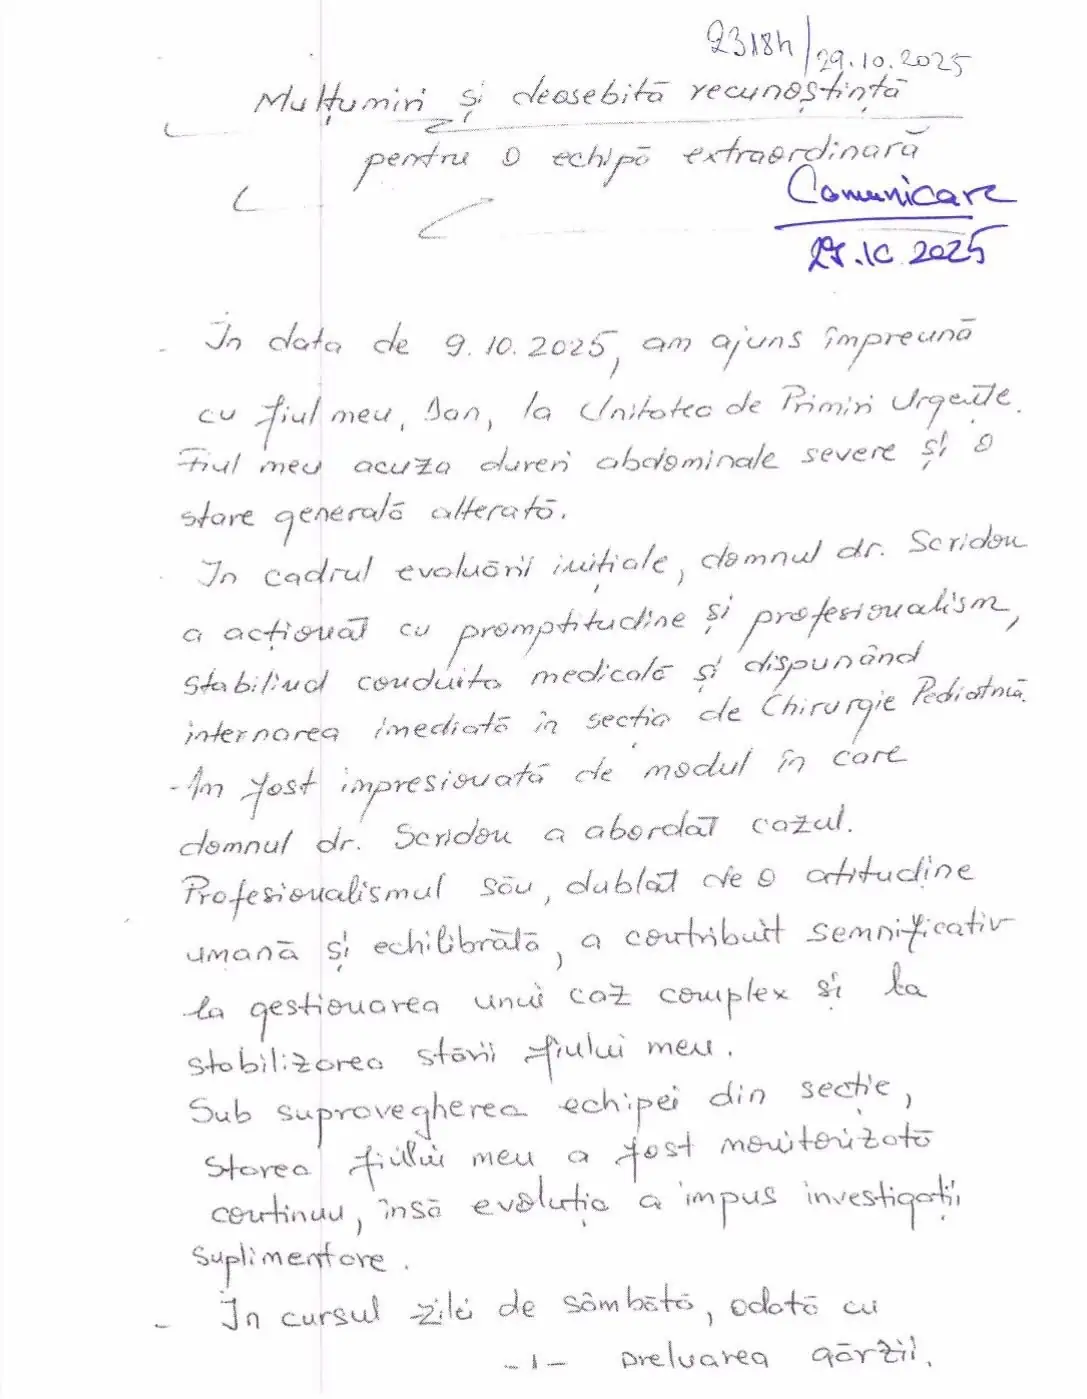 23184/29.10.2025
Mulțumiri și deosebită recunoștință
pentru o echipă extraordinară
Comunicare
29.10.2025
În data de 9.10.2025, am ajuns împreună
cu fiul meu, Dan, la Unitatea de Primiri Urgențe.
Fiul meu acuza dureri abdominale severe și o
stare generală alterată.
În cadrul evaluării inițiale, domnul dr. Scridon
a acționat cu promptitudine și profesionalism,
stabilind conduita medicală și dispunând
internarea imediată în secția de Chirurgie Pediatrică.
- Am fost impresionată de modul în care
domnul dr. Scridon a abordat cazul.
Profesionalismul său, dublat de o atitudine
umană și echilibrată, a contribuit semnificativ
la gestionarea unui caz complex și la
stabilizarea stării fiului meu.
Sub supravegherea echipei din secție,
starea fiului meu a fost monitorizată
continuu, însă evoluția a impus investigații
suplimentare.
- În cursul zilei de sâmbătă, odată cu
-1- preluarea gărzii,